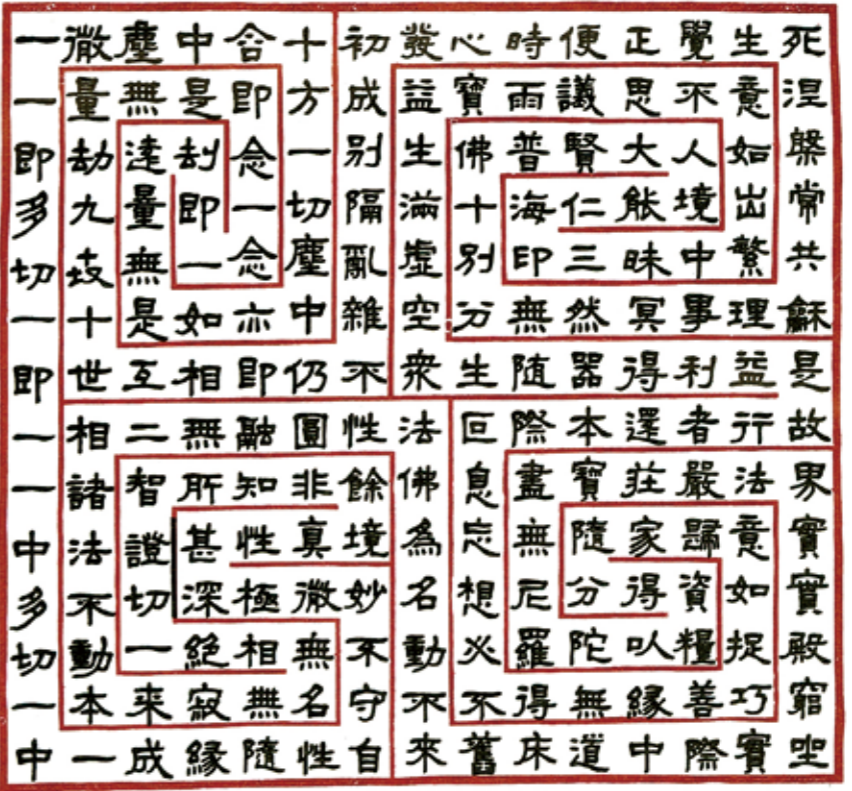 一微塵中含十初發心時便正覺生死
一量無是即方成益寶雨議思不意涅
即劫遠劫念一別生佛普賢大人如槃
多九量即一切隔滿十海仁能境出常
切世無一念塵亂虛別印三昧中繁共
一十是如亦中雜空分無然冥事理龢
即世互相即仍不衆生随器得利益是
一相二無融圓性法叵際本還者行故
一諸智所知非餘佛息盡寶莊嚴法界
中法證甚性真境為忘無隨家歸意實
多不切深極微妙名想尼分得資如寶
切動一絕相無不動必羅陀以糧捉殿
一本来寂無名守不不得無緣善巧窮
中一成緣隨性自來舊床道中際實坐